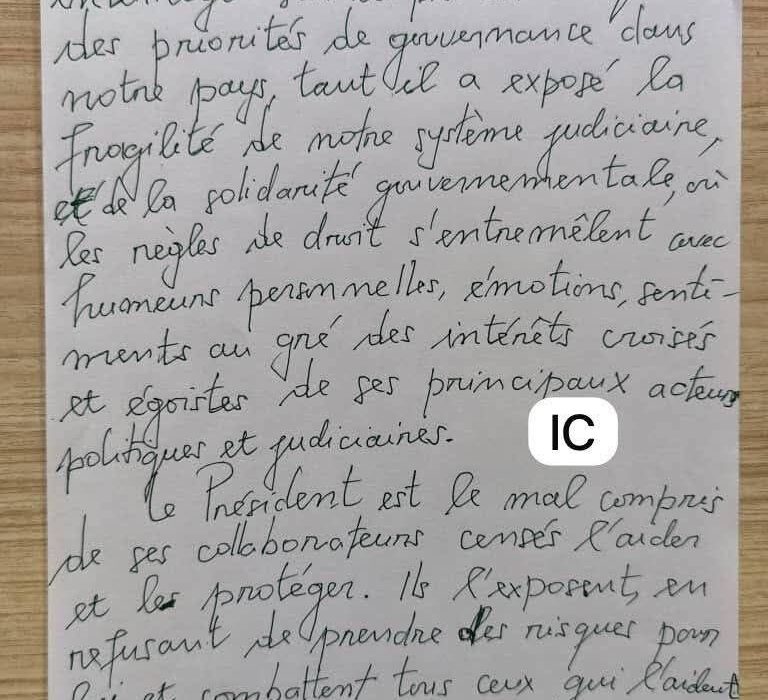 des priorités de gouvernance dans
notre pays, tant il a exposé la
fragilité de notre système judiciaire,
et de la solidarité gouvernementale, où
les règles de droit s'entremêlent avec
humeurs personnelles, émotions, senti-
ments au gré des intérêts croisés
et égoistes de ses principaux acteurs
politiques et judiciaires.
IC
Le Président est le mal compris
de ses collaborateurs censés l'aider
et le protéger. Ils l'exposent, en
refusant de prendre des risques pour
lui et combattent tous ceux qui l'aident